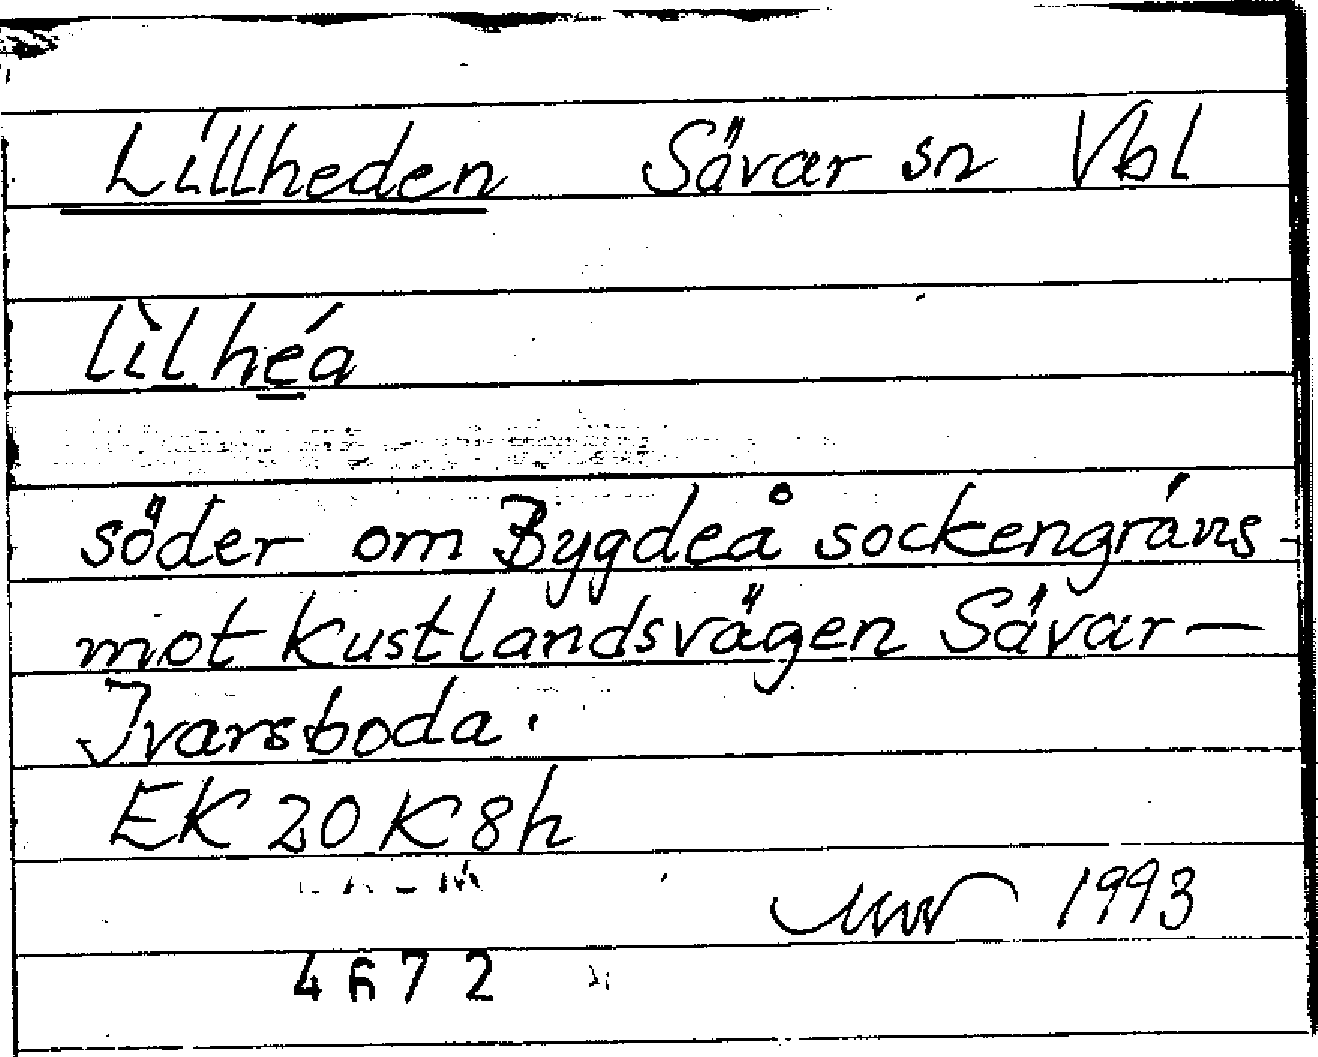 Lillheden Sävar sn Vbl
lìlhéa
söder om Bygdeå sockengräns
mot Kustlandsvägen Sävar—
Ivarsboda.
EK 20 K 8h
1993
4672